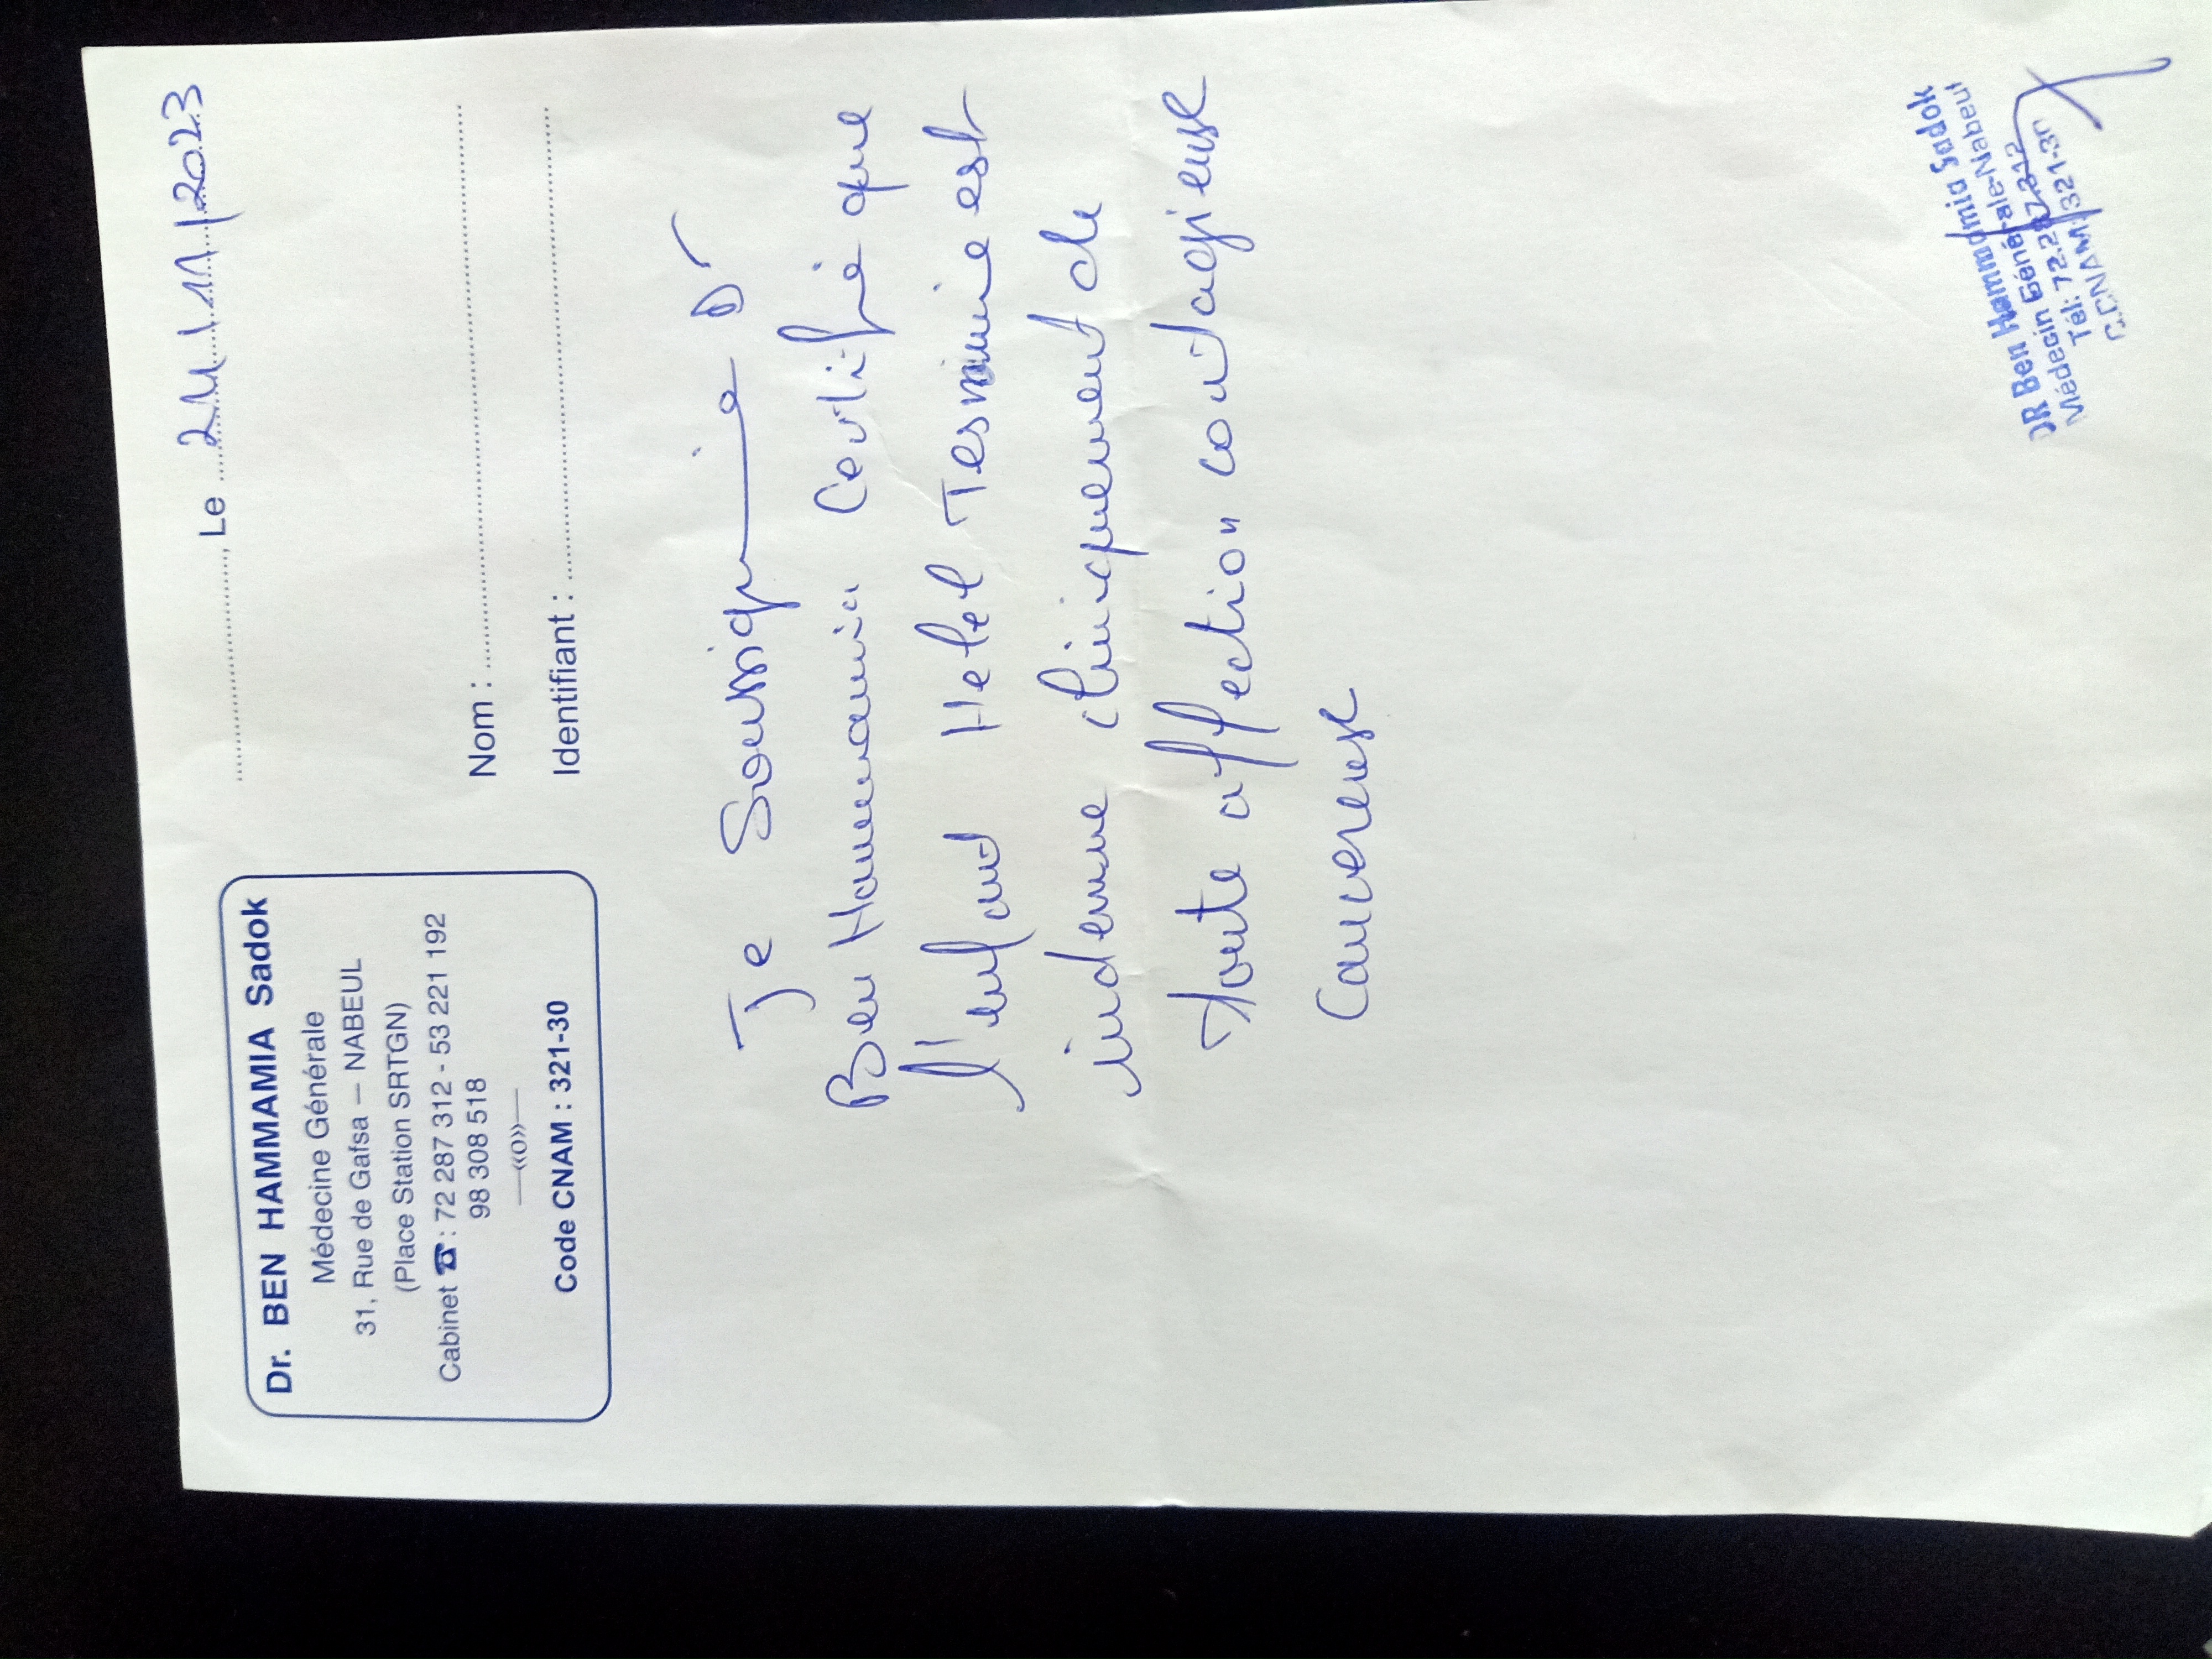 Dr. BEN HAMMAMIA Sadok
Médecine Générale
31, Rue de Gafsa – NABEUL
(Place Station SRTGN)
Cabinet ☎ : 72 287 312 - 53 221 192
98 308 518
—«o»—
Code CNAM : 321-30
...................., Le ..........|11|2023
Nom : ....................
Identifiant : ....................
Je Soussigné Dr
Ben Hammamia Certifie que
l'enfant Helel est
indemne cliniquement de
toute affection contagieuse
Cancereuse
DR Ben Hammamia Sadok
Médecin Générale-Nabeul
Tél: 72.287.312
C.CNAM 321-30